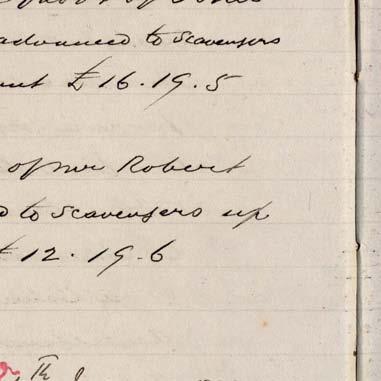 advanced to Scavengers
£16.19.5
of Mr Robert
to Scavengers up
12.19.6
th